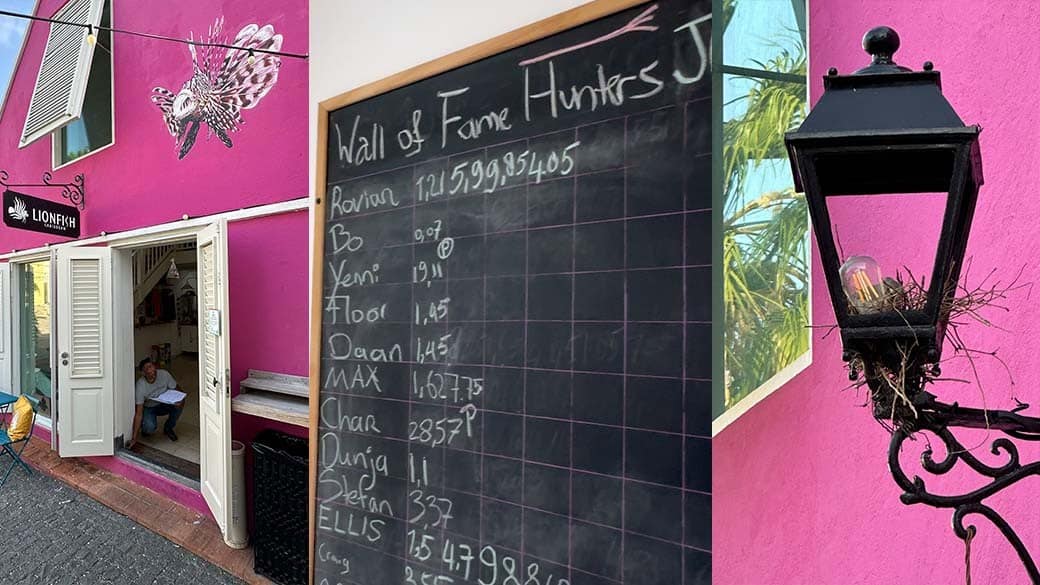 LIONFISH
CARIBBEAN
Wall of Fame Hunters J
Rovian 1,215,99,85405
Bo 0,07
Yenni 19,11 P
Floor 1,45
Daan 1,45
MAX 1,627.75
Char 28,57 P
Dunja 1,1
Stefan 337
ELLIS
Craig